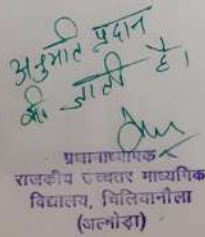 अनुमति प्रदान
की जाती है।
प्रधानाध्यापक
राजकीय उच्चतर माध्यमिक
विद्यालय, चिलियानौला
(अल्मोड़ा)